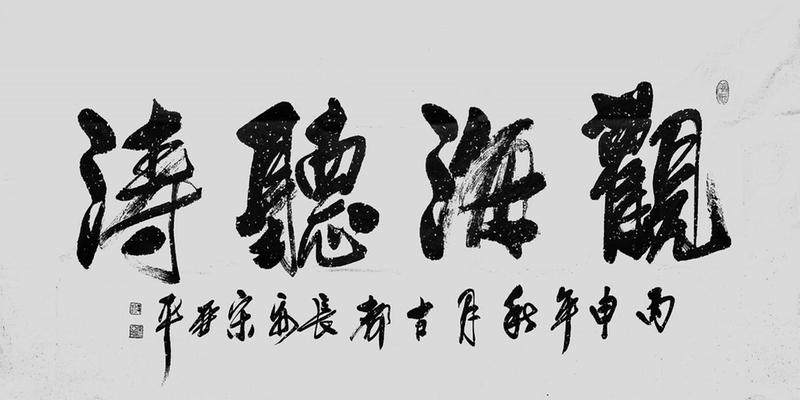 觀海聽涛
丙申年秋月古都長安宋亚平